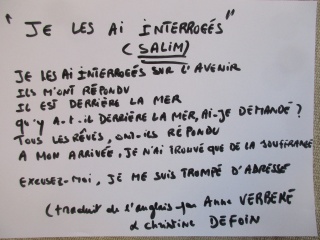 " JE LES AI INTERROGÉS "
( SALIM )
JE LES AI INTERROGÉS SUR L'AVENIR
ILS M'ONT RÉPONDU
IL EST DERRIÈRE LA MER
QU'Y A-T-IL DERRIÈRE LA MER, AI-JE DEMANDÉ ?
TOUS LES RÊVES, ONT-ILS RÉPONDU
A MON ARRIVÉE, JE N'AI TROUVÉ QUE DE LA SOUFFRANCE
EXCUSEZ-MOI, JE ME SUIS TROMPÉ D'ADRESSE
( traduit de l'anglais par Anne VERBEKE
et Christine DEFOIN